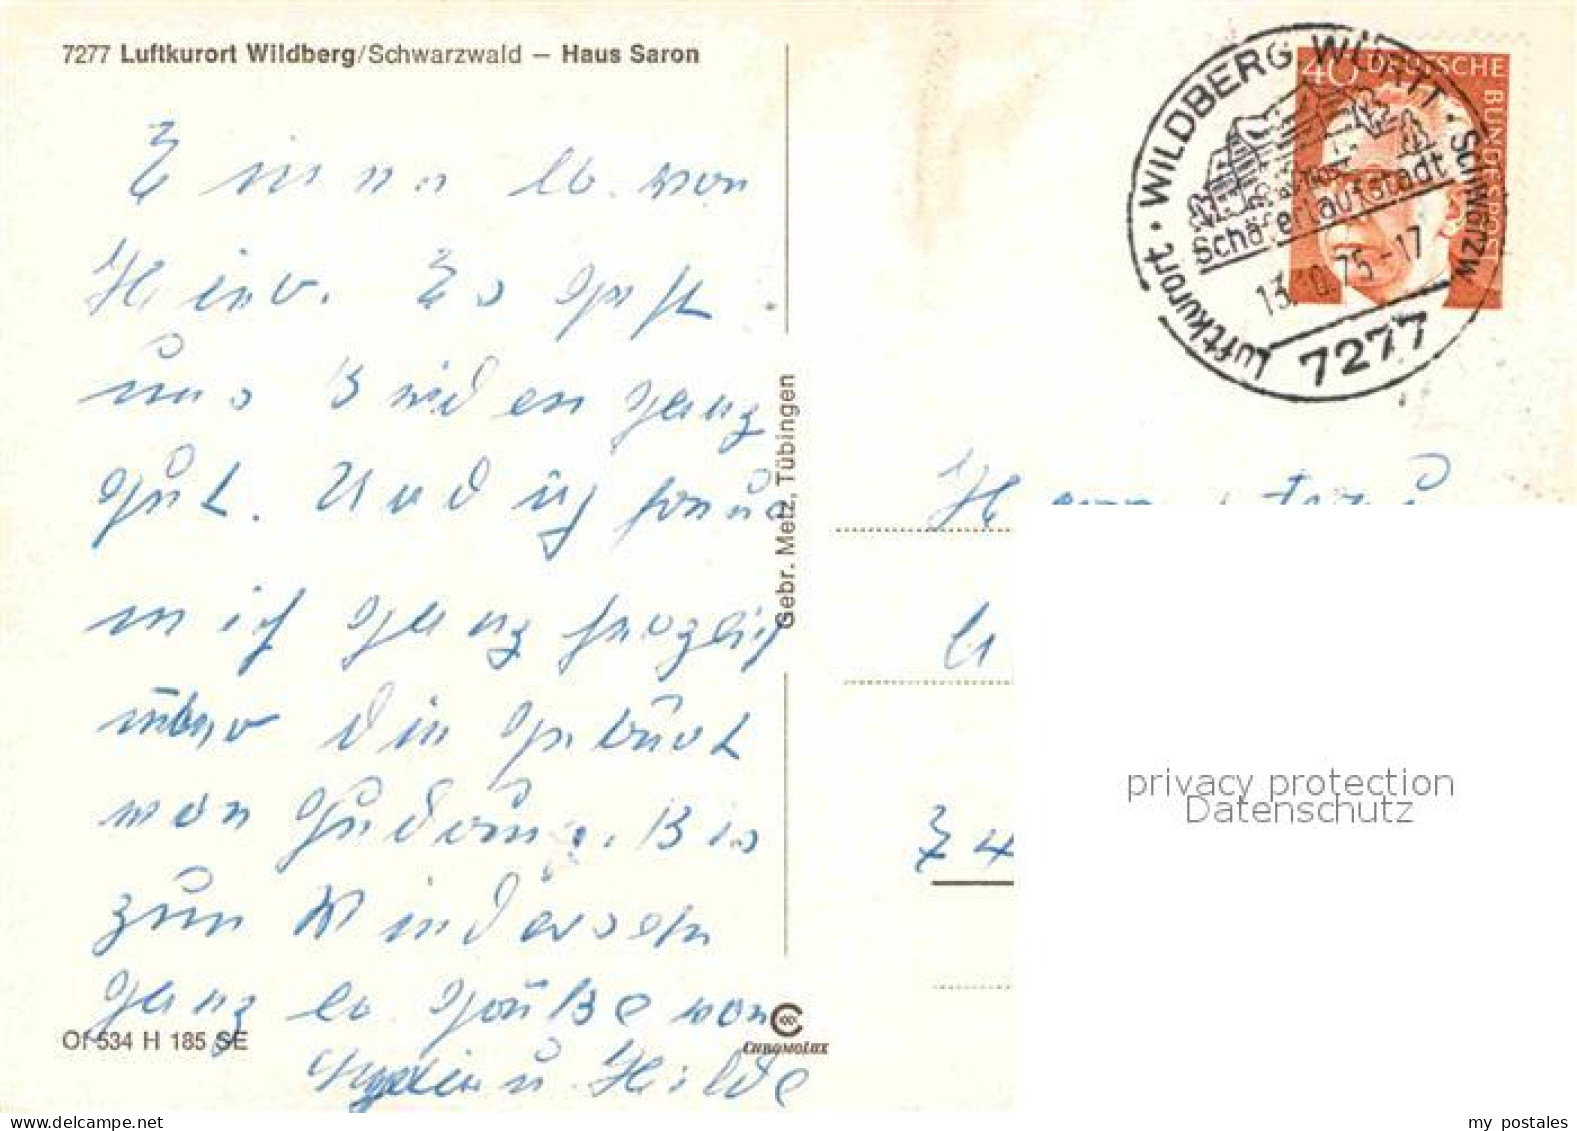 7277 Luftkurort Wildberg/Schwarzwald – Haus Saron
uns Beiden ganz
gut. Und ich freue
mich ganz herzlich
über die Geburt
von Gudrun. Bis
zum Wiedersehn
ganz lb. Grüße von
u. Hilde
Gebr. Metz, Tübingen
Of 534 H 185 SE
CHROMOLUX
40 DEUTSCHE BUNDESPOST
Luftkurort · WILDBERG WÜRTT · Schwarzw
Schäferlaufstadt
13. 10. 75 - 17
7277
74
privacy protection
Datenschutz
my postales